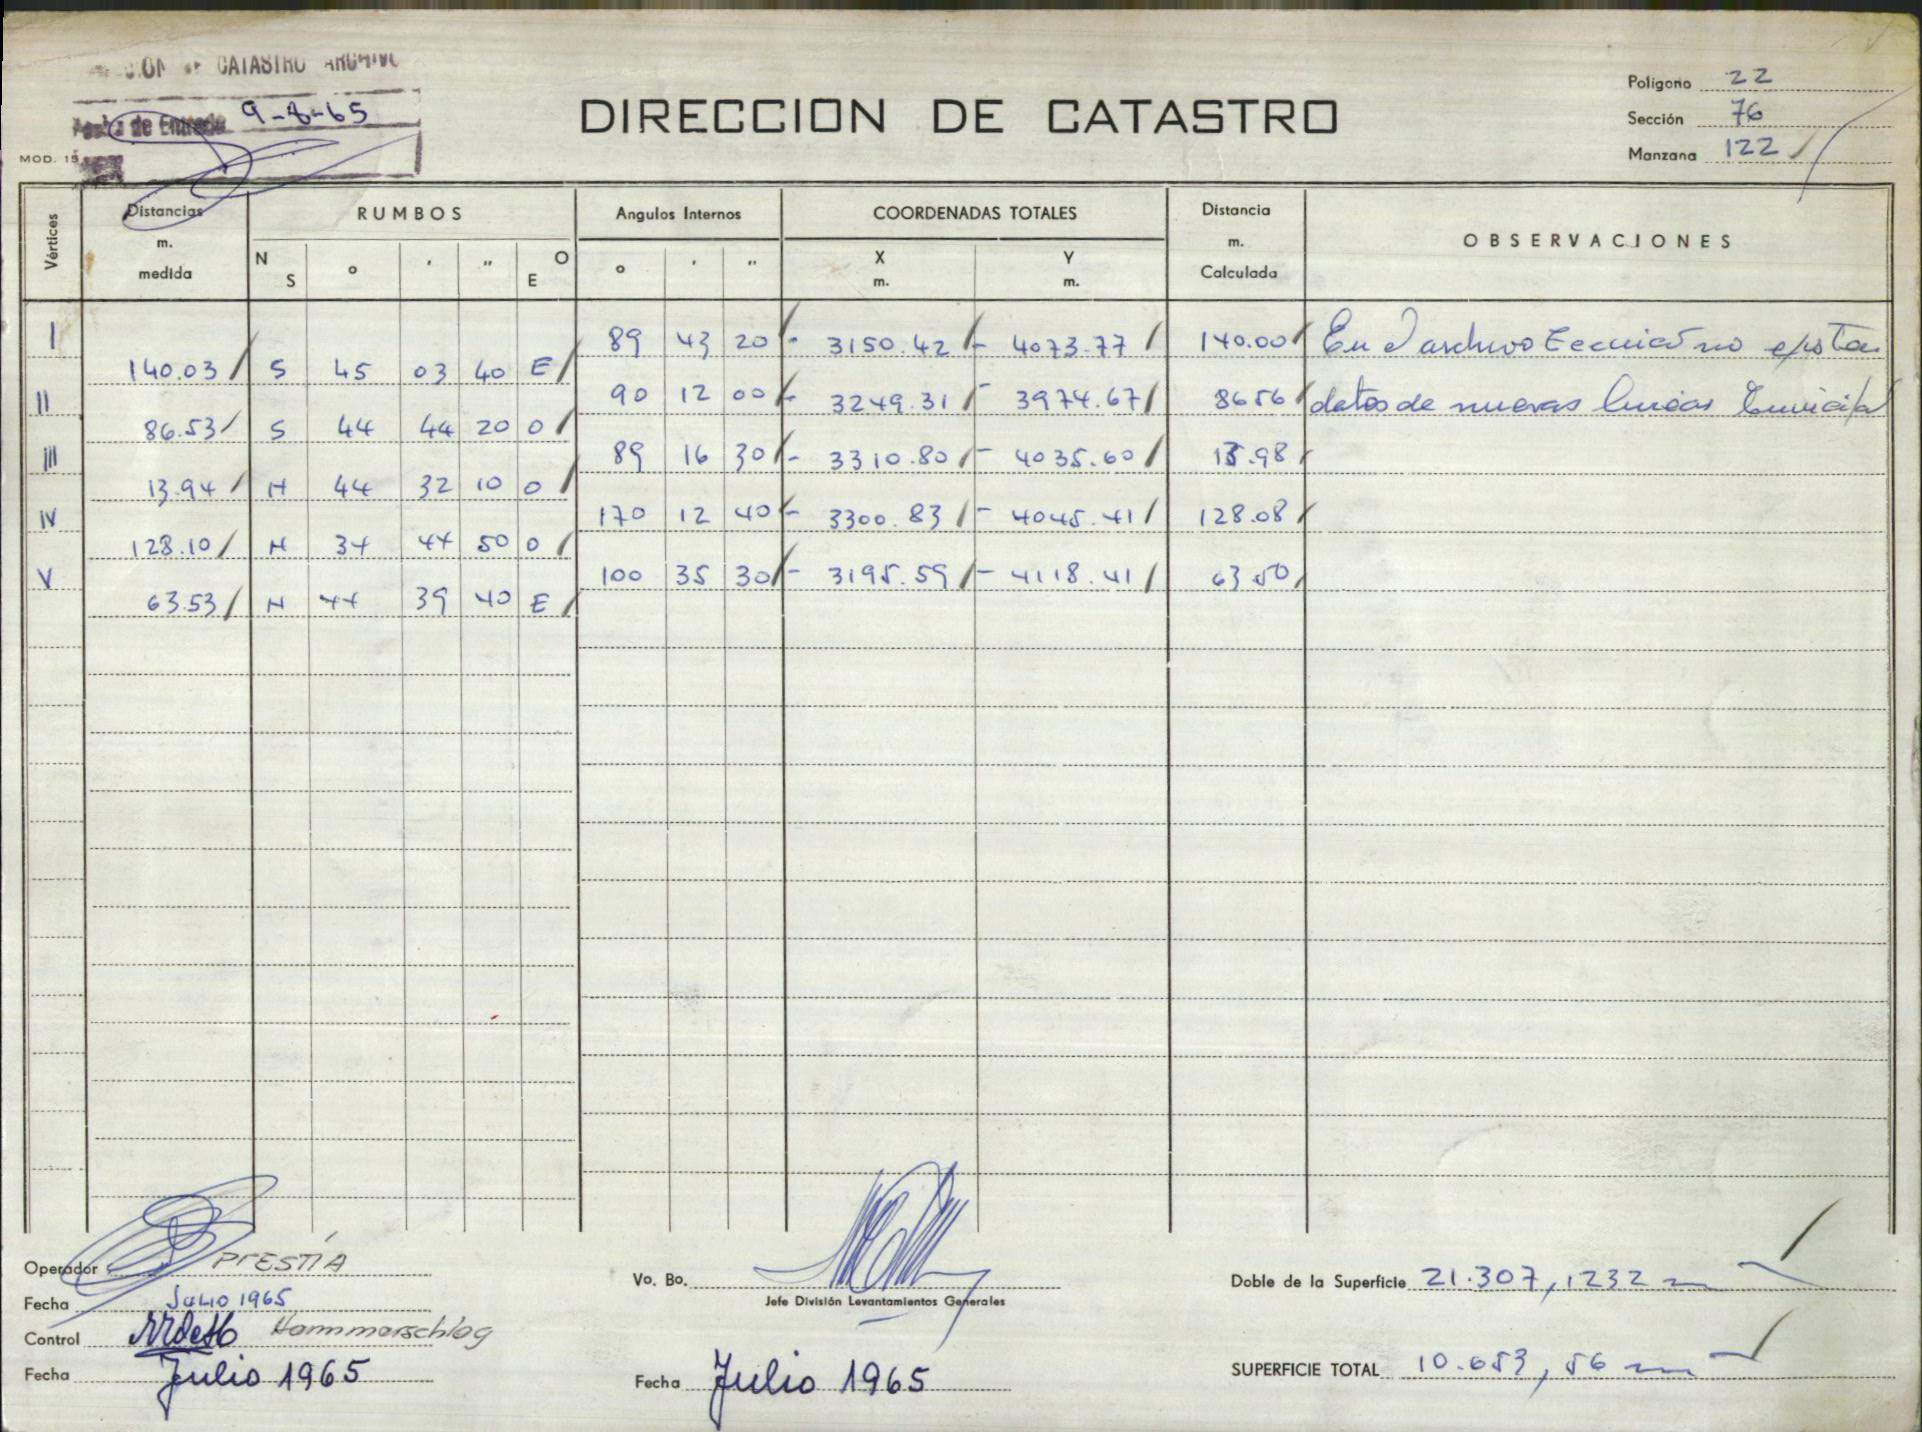 CATASTRO ARCHIVO
Fecha de Entrada 9-8-65
MOD. 15
DIRECCION DE CATASTRO
Polígono 22
Sección 76
Manzana 122
Vértices Distancias m. medida RUMBOS Angulos Internos COORDENADAS TOTALES Distancia m. Calculada OBSERVACIONES
N S ° ' " O E ° ' " X m. Y m.
I 89 43 20 - 3150.42 - 4073.77 140.00 En el archivo tecnico no existen
140.03 S 45 03 40 E
II 90 12 00 - 3249.31 - 3974.67 86.56 datos de nuevas lineas
86.53 S 44 44 20 O
III 89 16 30 - 3310.80 - 4035.60 13.98
13.94 N 44 32 10 O
IV 170 12 40 - 3300.83 - 4045.41 128.08
128.10 N 34 44 50 O
V 100 35 30 - 3195.59 - 4118.41 63.50
63.53 N 44 39 40 E
Operador PRESTIA
Fecha Julio 1965
Control Hammerschlag
Fecha Julio 1965
Vo. Bo.
Jefe División Levantamientos Generales
Fecha Julio 1965
Doble de la Superficie 21.307,1232
SUPERFICIE TOTAL 10.653,56